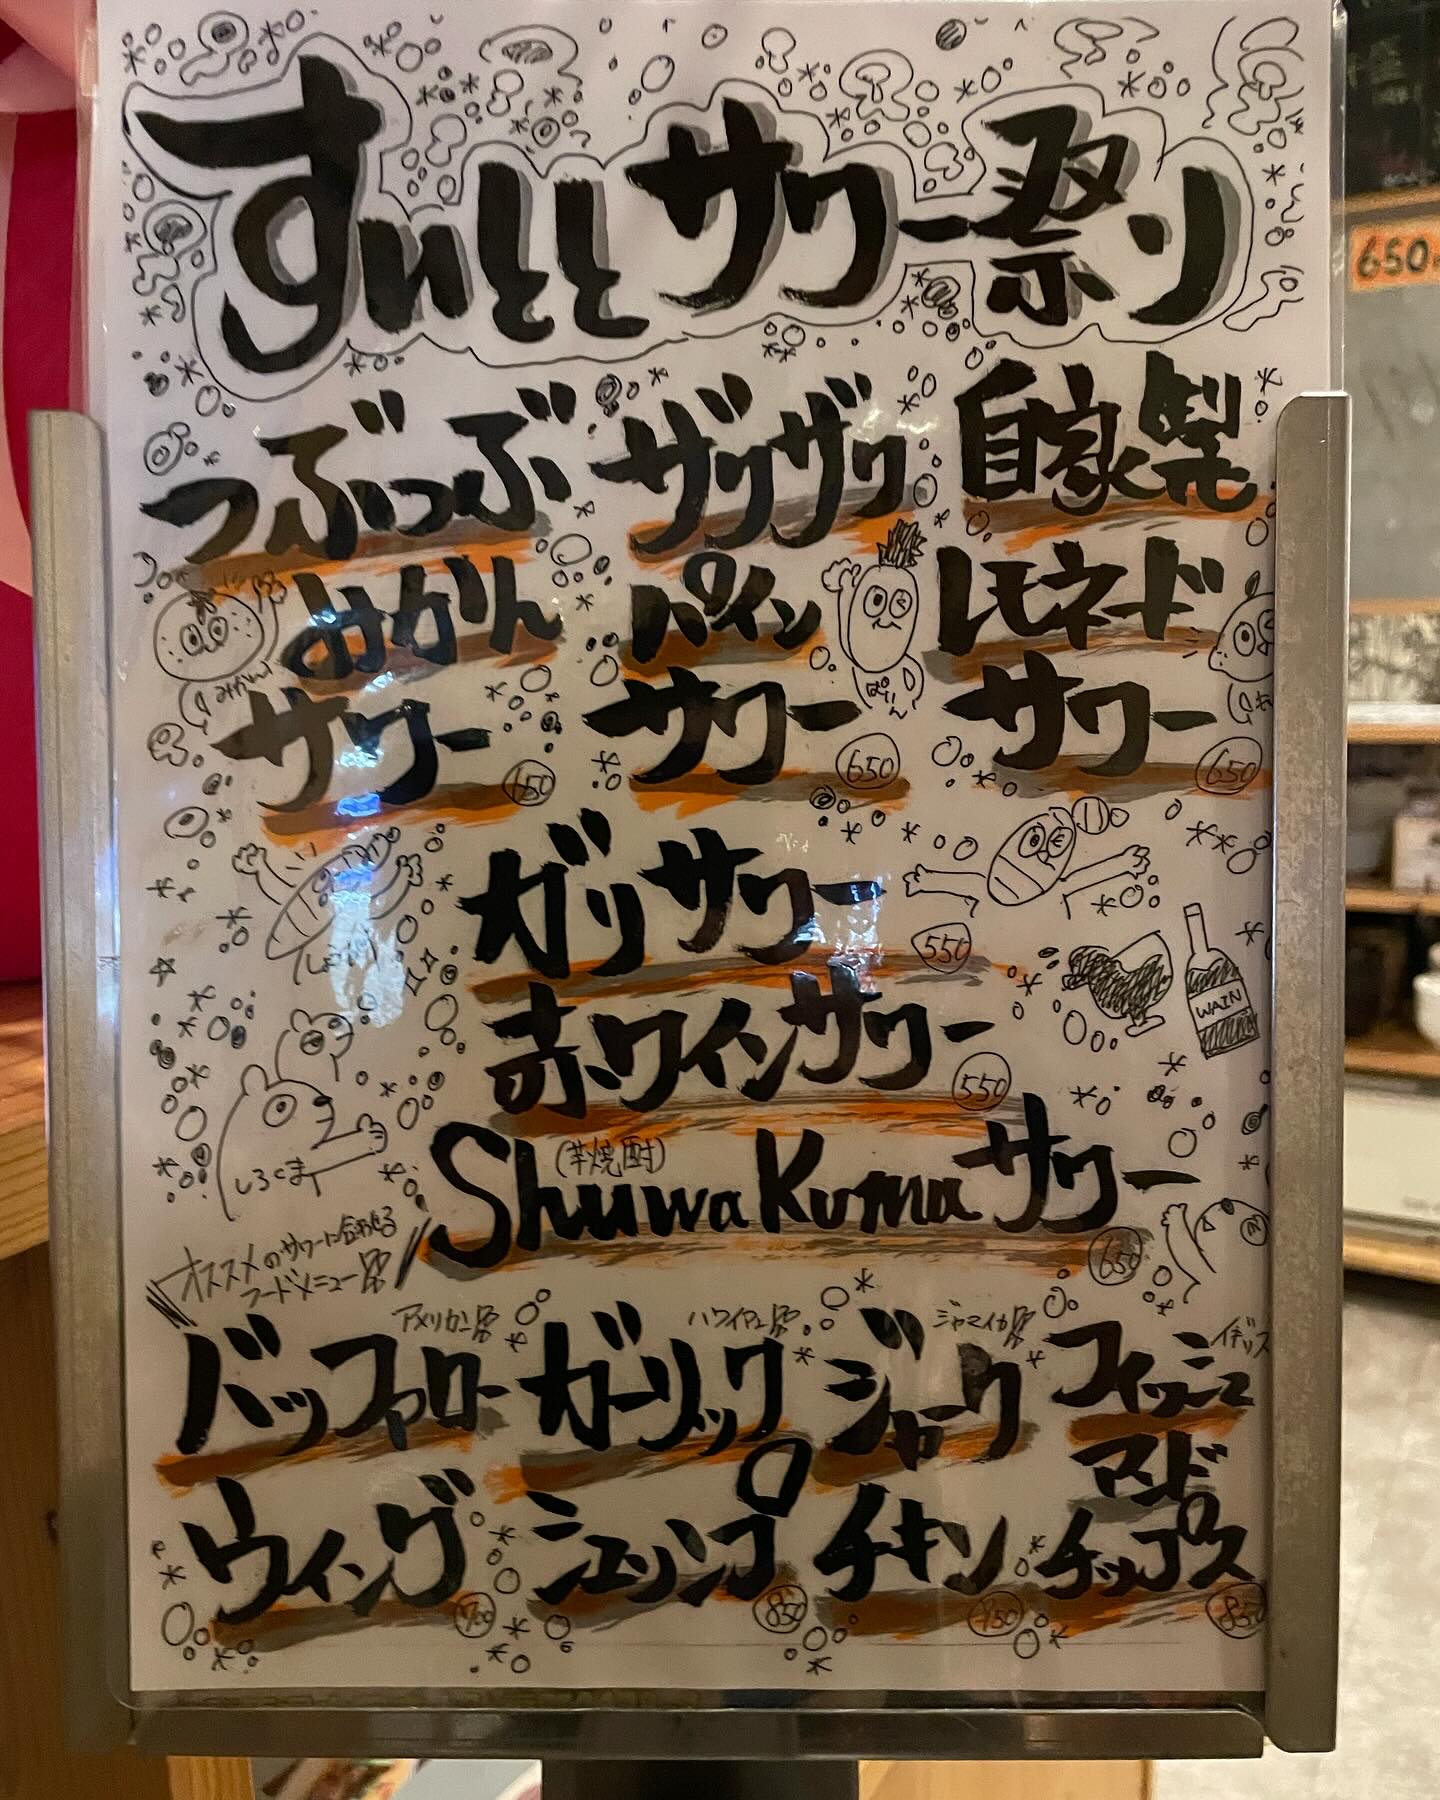 すいとと サワー祭り
つぶつぶ みかん サワー 650
ザクザク パイン サワー 650
自家製 レモネード サワー 650
みかん
ぱいん
ガリサワー 550
しょうが
赤ワインサワー 550
WAIN
しろくま
(芋焼酎)
Shuwa Kumaサワー 650
オススメのサワーに合わせる
フードメニュー
アメリカン
バッファロー ウィング
ハワイアン
ガーリック シュリンプ 850
ジャマイカ
ジャーク チキン
イギリス
フィッシュ アンド チップス 850
650